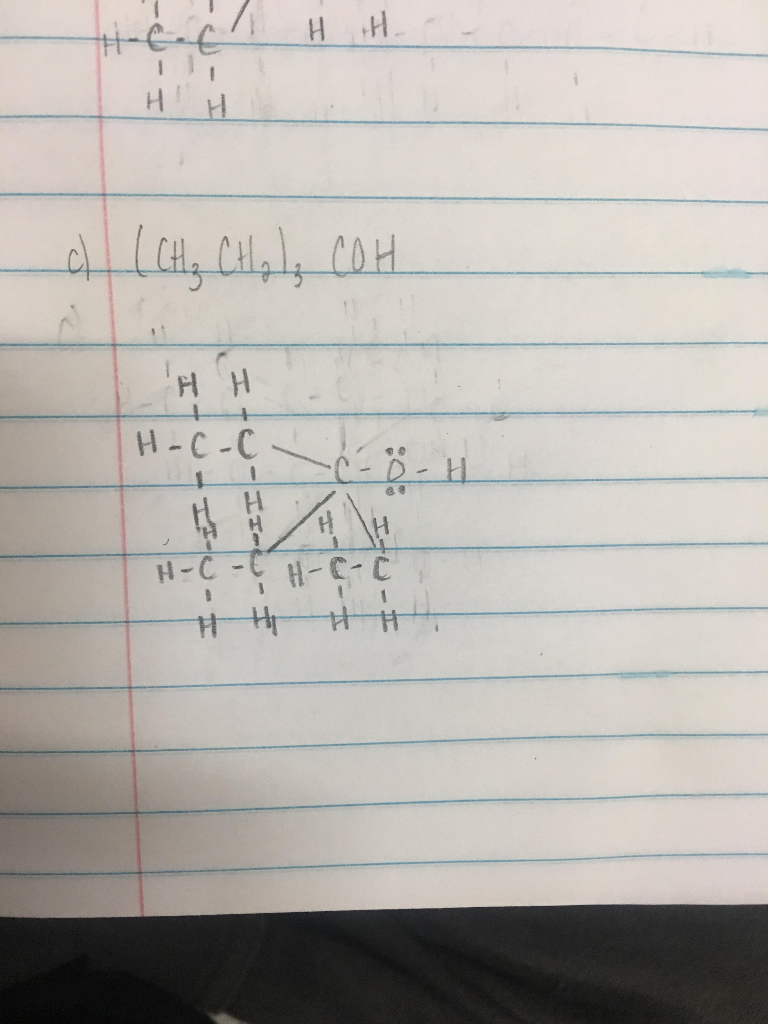 H-C-C H H
H H
c) (CH₃ CH₂)₃ COH
H H
H-C-C
C-O-H
H H
H H H H
H-C-C H-C-C
H H H H